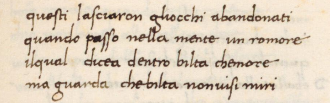 questi lasciaron gliocchi abandonati
quando passo nella mente un romore
ilqual dicea dentro bilta chemore
ma guarda chebilta nonuisi miri